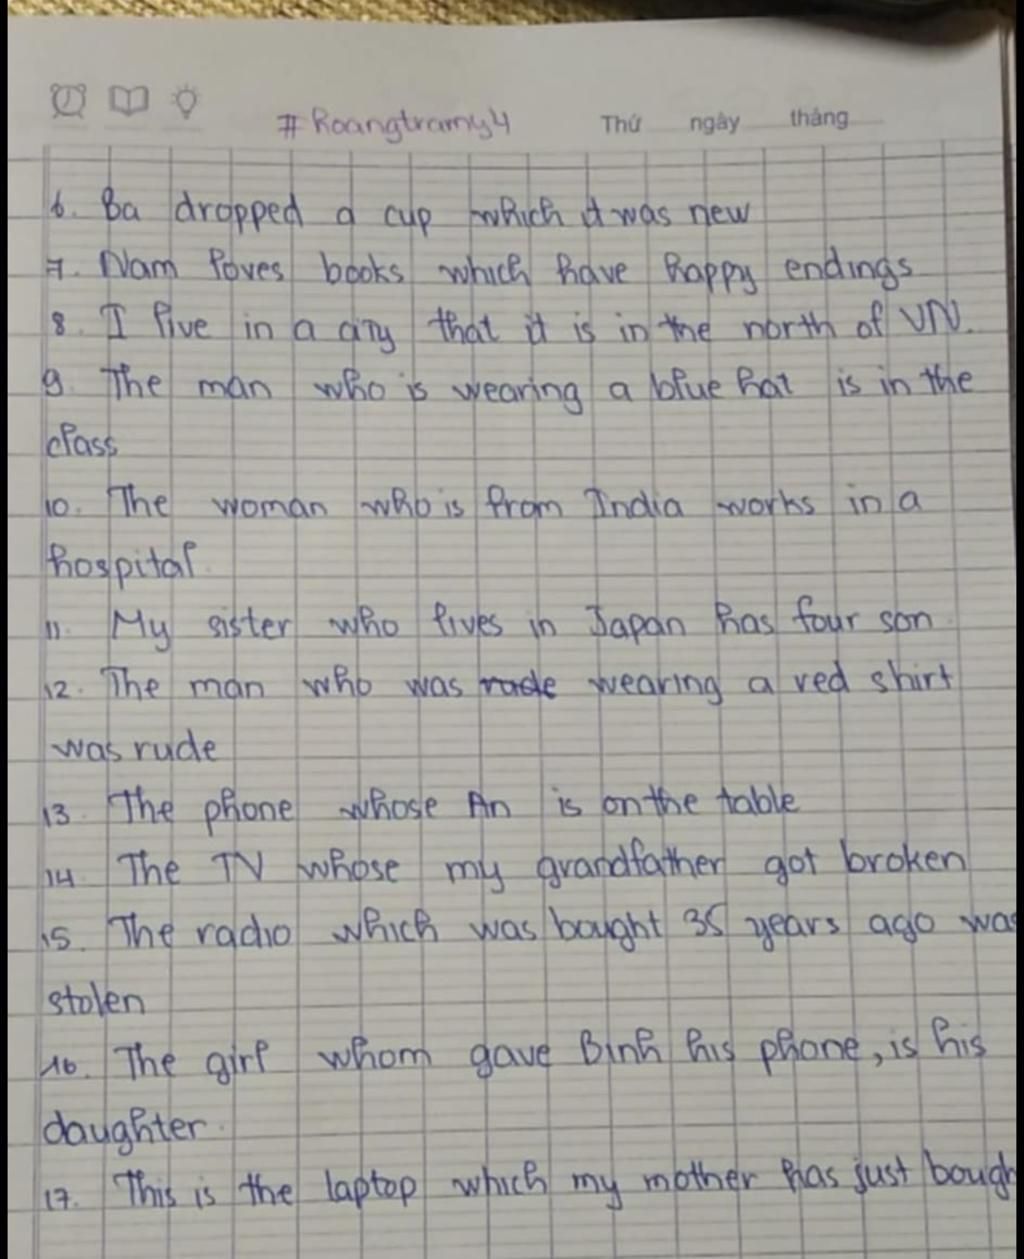 #hoangtramy4 Thứ ngày tháng
6. Ba dropped a cup which it was new
7. Nam loves books which have happy endings
8. I live in a city that it is in the north of VN.
9. The man who is wearing a blue hat is in the
class
10. The woman who is from India works in a
hospital
11. My sister who lives in Japan has four son
12. The man who was rude wearing a red shirt
was rude
13. The phone whose An is on the table
14 The TV whose my grandfather got broken
15. The radio which was bought 35 years ago was
stolen
16. The girl whom gave Binh his phone, is his
daughter.
17. This is the laptop which my mother has just bough